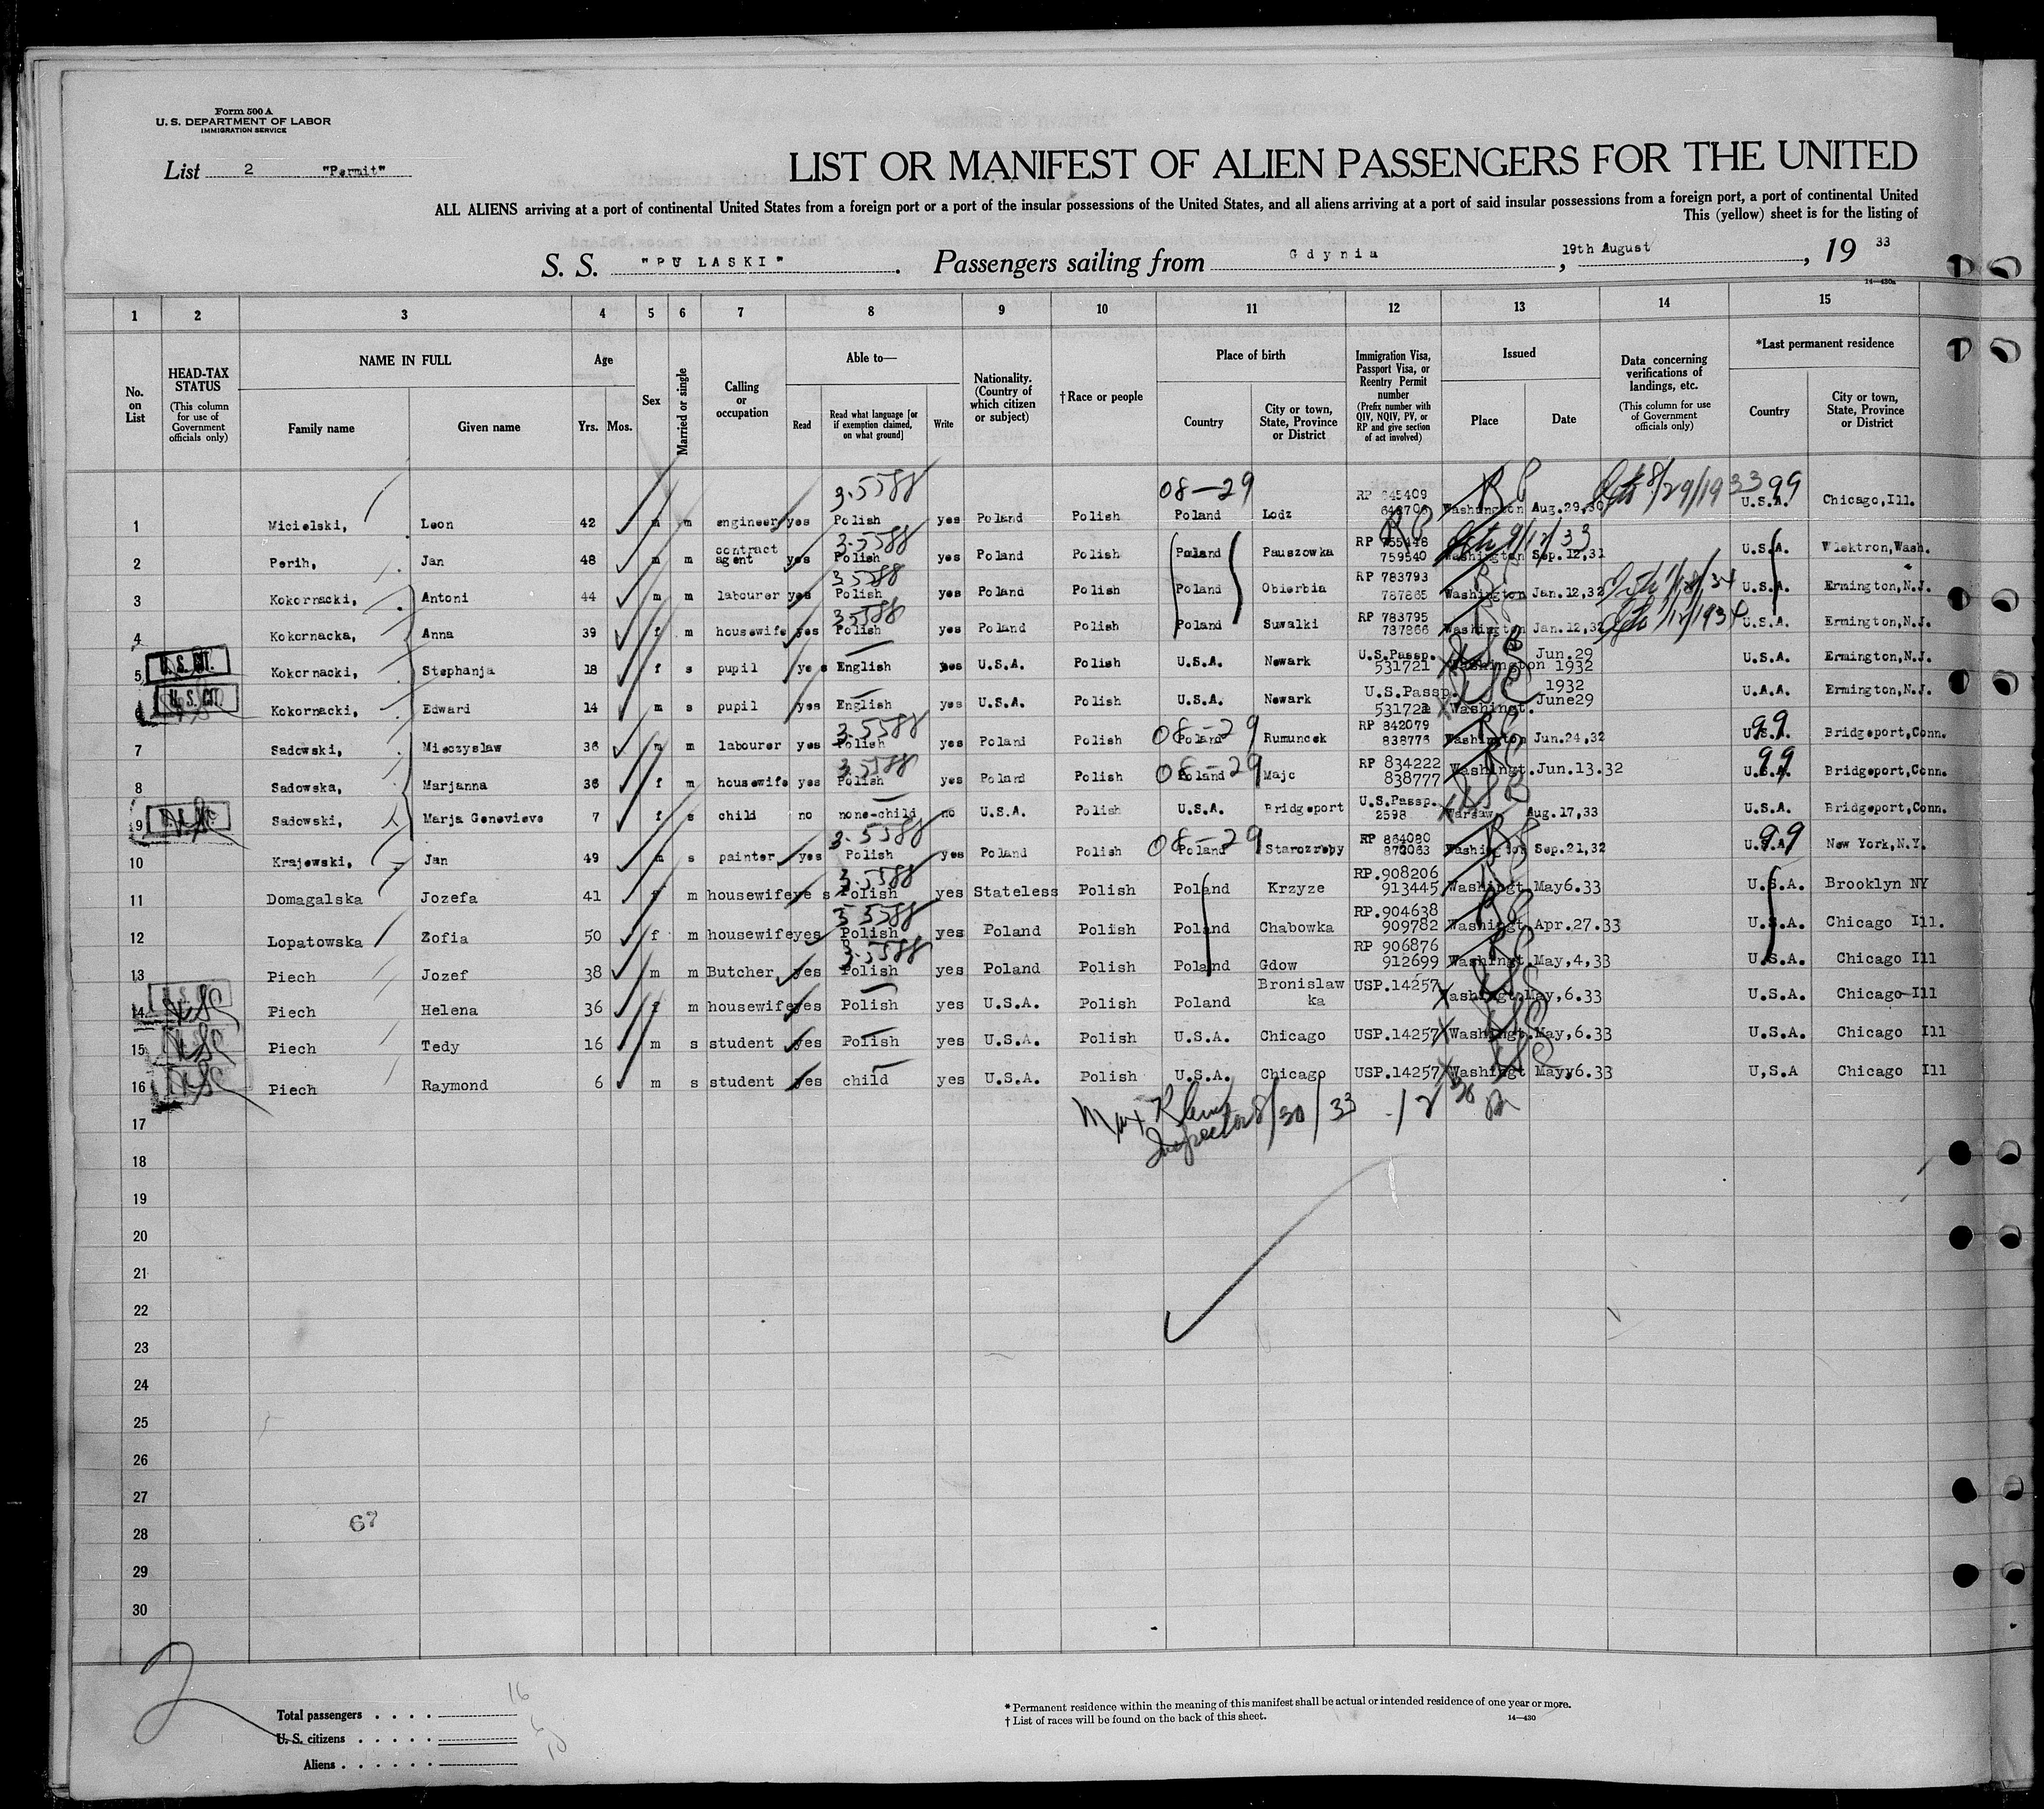 Form 500 A
U. S. DEPARTMENT OF LABOR
IMMIGRATION SERVICE
List 2 "Permit"
LIST OR MANIFEST OF ALIEN PASSENGERS FOR THE UNITED
ALL ALIENS arriving at a port of continental United States from a foreign port or a port of the insular possessions of the United States, and all aliens arriving at a port of said insular possessions from a foreign port, a port of continental United
This (yellow) sheet is for the listing of
S. S. "PULASKI". Passengers sailing from Gdynia, 19th August, 19 33
14—430a
1 2 3 4 5 6 7 8 9 10 11 12 13 14 15
No. on List
HEAD-TAX STATUS (This column for use of Government officials only)
NAME IN FULL
Family name Given name
Age
Yrs. Mos.
Sex
Married or single
Calling or occupation
Able to—
Read
Read what language [or if exemption claimed, on what ground]
Write
Nationality. (Country of which citizen or subject)
†Race or people
Place of birth
Country
City or town, State, Province or District
Immigration Visa, Passport Visa, or Reentry Permit number (Prefix number with QIV, NQIV, PV, or RP and give section of act involved)
Issued
Place Date
Data concerning verifications of landings, etc. (This column for use of Government officials only)
*Last permanent residence
Country
City or town, State, Province or District
3-5588 08-29 RP 8/29/1933 99
1 Micielski, Leon 42 m m engineer yes Polish yes Poland Polish Poland Lodz RP 645409 Washington Aug.29,30 U.S.A. Chicago,Ill.
3-5588 RP
2 Perih, Jan 48 m m contract agent yes Polish yes Poland Polish Poland Pauszowka RP 755448 759540 Washington Sep.12,31 U.S.A. Wlektron,Wash.
3-5588
3 Kokornacki, Antoni 44 m m labourer yes Polish yes Poland Polish Poland Obierbia RP 783793 787865 Washington Jan.12,32 U.S.A. Ermington,N.J.
3-5588
4 Kokornacka, Anna 39 f m housewife yes Polish yes Poland Polish Poland Suwalki RP 783795 787866 Washington Jan.12,32 U.S.A. Ermington,N.J.
U.S. CIT.
5 Kokornacki, Stephanja 18 f s pupil yes English yes U.S.A. Polish U.S.A. Newark U.S.Passp. 531721 Washington Jun.29 1932 U.S.A. Ermington,N.J.
U.S. CIT.
6 Kokornacki, Edward 14 m s pupil yes English yes U.S.A. Polish U.S.A. Newark U.S.Passp. Washingt. 1932 June29 U.A.A. Ermington,N.J.
3-5588 08-29 99
7 Sadowski, Mieczyslaw 36 m m labourer yes Polish yes Poland Polish Poland Rumuncek RP 842079 838776 Washington Jun.24,32 U.S.A. Bridgeport,Conn.
3-5588 08-29 99
8 Sadowska, Marjanna 36 f m housewife yes Polish yes Poland Polish Poland Majc RP 834222 838777 Washingt. Jun.13.32 U.S.A. Bridgeport,Conn.
9 Sadowski, Marja Genevieve 7 f s child no none-child no U.S.A. Polish U.S.A. Bridgeport U.S.Passp. 2598 Warsaw, Aug.17,33 U.S.A. Bridgeport,Conn.
3-5588 08-29 99
10 Krajewski, Jan 49 m s painter yes Polish yes Poland Polish Poland Starozreby RP 864080 872063 Washington Sep.21,32 U.S.A. New York,N.Y.
3-5588
11 Domagalska Jozefa 41 f m housewife yes Polish yes Stateless Polish Poland Krzyze RP.908206 913445 Washingt. May6.33 U.S.A. Brooklyn NY
3-5588
12 Lopatowska Zofia 50 f m housewife yes Polish yes Poland Polish Poland Chabowka RP.904638 909782 Washingt. Apr.27.33 U.S.A. Chicago Ill.
3-5588
13 Piech Jozef 38 m m Butcher, yes Polish yes Poland Polish Poland Gdow RP 906876 912699 Washingt. May,4,33 U.S.A. Chicago Ill
14 Piech Helena 36 f m housewife yes Polish yes U.S.A. Polish Poland Bronislaw ka USP.14257 Washingt. May,6.33 U.S.A. Chicago Ill
15 Piech Tedy 16 m s student yes Polish yes U.S.A. Polish U.S.A. Chicago USP.14257 Washingt. May,6.33 U.S.A. Chicago Ill
16 Piech Raymond 6 m s student yes child yes U.S.A. Polish U.S.A. Chicago USP.14257 Washingt Mayy6.33 U,S.A Chicago Ill
17
Inspector 8/30/33
18
19
20
21
22
23
24
25
26
27
67
28
29
30
2
Total passengers . . . . 16
U. S. citizens . . . . .
Aliens . . . . . .
* Permanent residence within the meaning of this manifest shall be actual or intended residence of one year or more.
† List of races will be found on the back of this sheet.
14—430